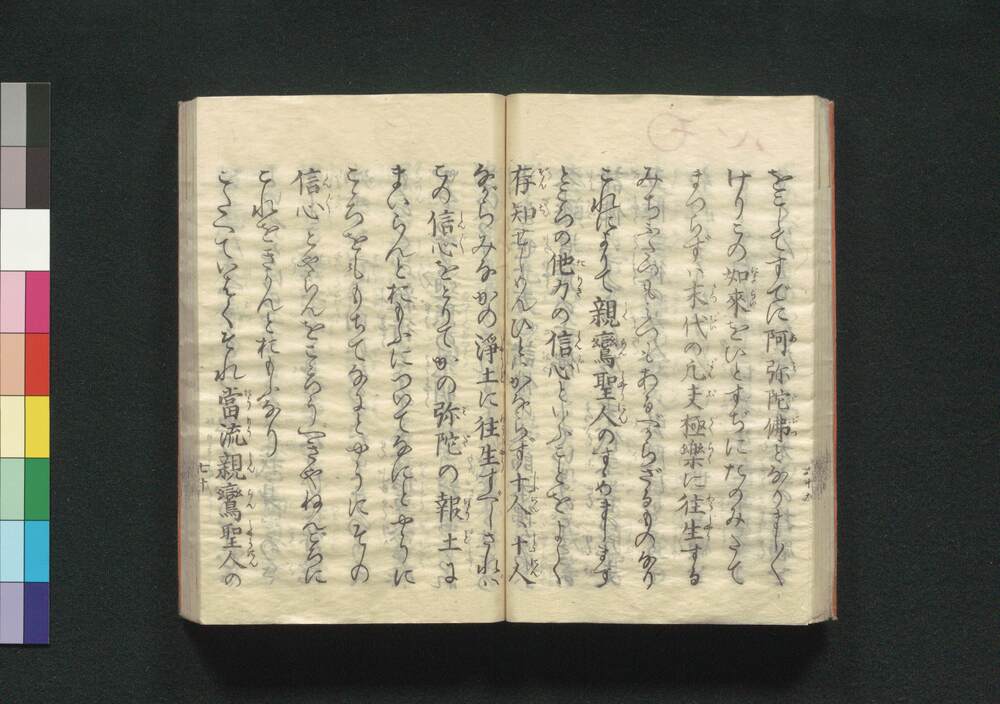 をこしてすでに阿弥陀佛となりまし〳〵
けりこの如來をひとすぢにたのみたて
まつらずは末代の凡夫極樂に往生する
みちふたつもみつもあるべからざるものなり
これによりて親鸞聖人のすゝめまします
ところの他力の信心といふことをよく
存知せしめんひとはかならず十人は十人
ながらみなかの淨土に往生すべしされば
この信心をとりてかの弥陀の報土に
まいらんとおもふについてなにとやうに
こゝろをももちてなにとやうにその
信心とやらんをこゝろうべきやねんごろに
これをきかんとおもふなり
こたへていはくそれ當流親鸞聖人の
七十